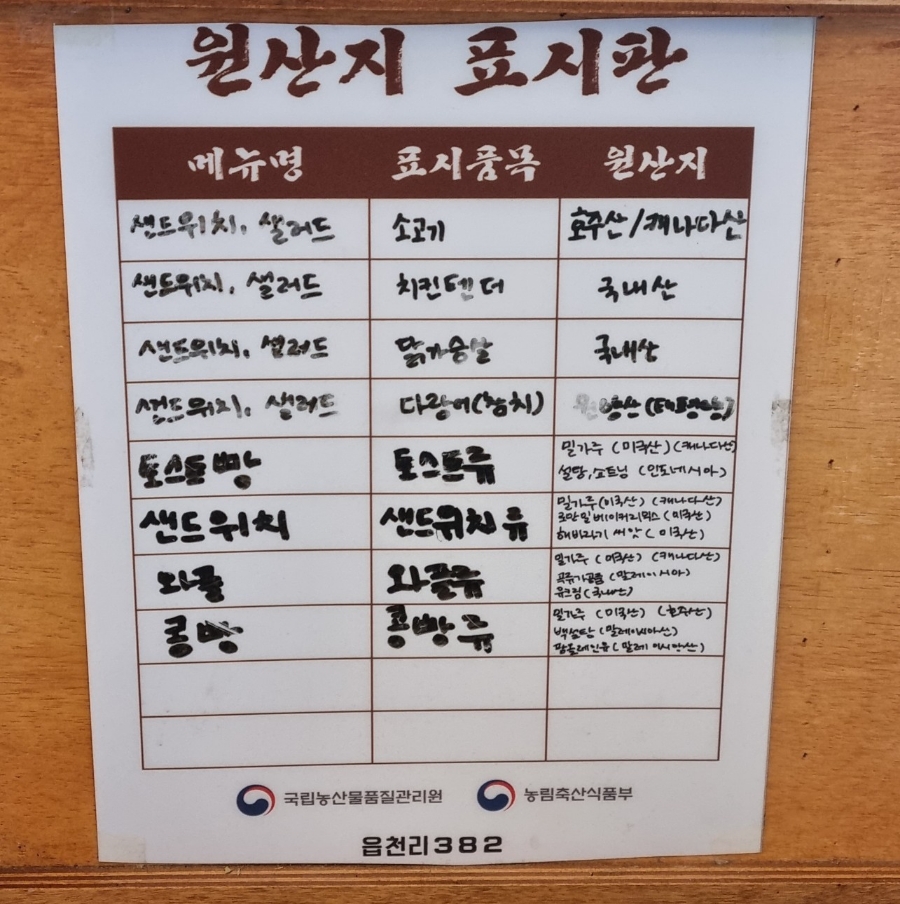 원산지 표시판
메뉴명 표시품목 원산지
샌드위치, 샐러드 소고기 호주산/캐나다산
샌드위치, 샐러드 치킨텐더 국내산
샌드위치, 샐러드 닭가슴살 국내산
샌드위치, 샐러드 다랑어(참치) 원양산(태평양)
토스트빵 토스트류 밀가루 (미국산)(캐나다산)
설탕,쇼트닝 (인도네시아)
샌드위치 샌드위치류 밀가루(미국산) (캐나다산)
로만밀베이커리믹스 (미국산)
해바라기 씨앗 (미국산)
와플 와플류 밀가루 (미국산) (캐나다산)
곡류가공품 (말레이시아)
유크림(국내산)
콩빵 콩빵류 밀가루 (미국산) (호주산)
백설탕 (말레이시아산)
팜올레인유 (말레이시아산)
국립농산물품질관리원 농림축산식품부
읍천리382